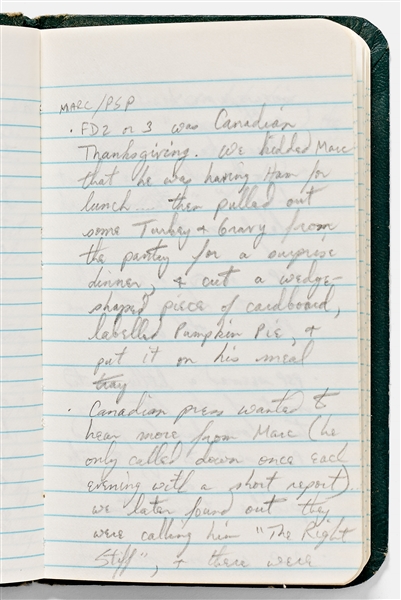 MARC/PSP
· FD2 or 3 was Canadian
Thanksgiving. We kidded Marc
that he was having Ham for
lunch.... then pulled out
some Turkey & Gravy from
the pantry for a surprise
dinner, & cut a wedge-
shaped piece of cardboard,
labelled Pumpkin Pie, &
put it on his meal
tray
· Canadian press wanted to
hear more from Marc (he
only called down once each
evening with a short report).
we later found out they
were calling him "The Right
Stiff", & there were